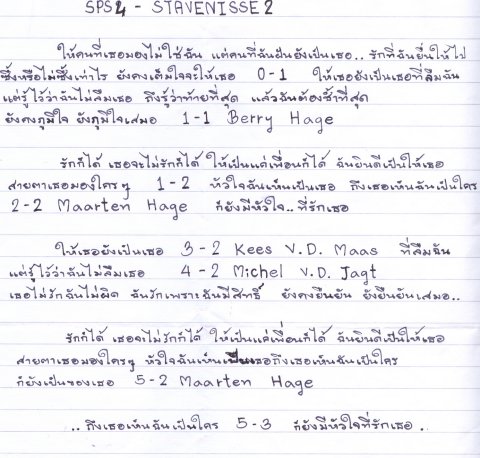 SPS 2 - STAVENISSE 2
ให้คนที่เธอมองไม่ใช่ฉัน แต่คนที่ฉันฝันยังเป็นเธอ.. รักที่ฉันยื่นให้ไป
ซึ้งหรือไม่ซึ้งเท่าไร ยังคงเต็มใจจะให้เธอ 0-1 ให้เธอยังเป็นเธอที่ลืมฉัน
แต่รู้ไว้ว่าฉันไม่ลืมเธอ ถึงรู้ว่าท้ายที่สุด แล้วฉันต้องช้ำที่สุด
ยังคงภูมิใจ ยังภูมิใจเสมอ 1-1 Berry Hage
รักก็ได้ เธอจะไม่รักก็ได้ ให้เป็นแค่เพื่อนก็ได้ ฉันยินดีเป็นให้เธอ
สายตาเธอมองใครๆ 1-2 หัวใจฉันเห็นเป็นเธอ ถึงเธอเห็นฉันเป็นใคร
2-2 Maarten Hage ก็ยังมีหัวใจ.. ที่รักเธอ
ให้เธอยังเป็นเธอ 3-2 Kees V.D. Maas ที่ลืมฉัน
แต่รู้ไว้ว่าฉันไม่ลืมเธอ 4-2 Michel V.D. Jagt
เธอไม่รักฉันไม่ผิด ฉันรักเพราะฉันมีสิทธิ์ ยังคงยืนยัน ยังยืนยันเสมอ..
รักก็ได้ เธอจะไม่รักก็ได้ ให้เป็นแค่เพื่อนก็ได้ ฉันยินดีเป็นให้เธอ
สายตาเธอมองใครๆ หัวใจฉันเห็นเป็นเธอถึงเธอเห็นฉันเป็นใคร
ก็ยังเป็นของเธอ 5-2 Maarten Hage
.. ถึงเธอเห็นฉันเป็นใคร 5-3 ก็ยังมีหัวใจที่รักเธอ .